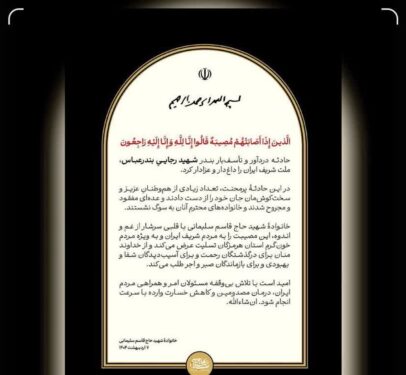 بسم الله الرحمن الرحیم
الَّذینَ إِذا أَصابَتْهُمْ مُصیبَةٌ قالُوا إِنَّا لِلَّهِ وَإِنَّا إِلَیْهِ راجِعُونَ
حادثه دردآور و تأسف‌بار بندر شهید رجایی بندرعباس،
ملت شریف ایران را داغ‌دار و عزادار کرد.
در این حادثهٔ پرمحنت، تعداد زیادی از هم‌وطنان عزیز و
سخت‌کوش‌مان جان خود را از دست دادند و عده‌ای مفقود
و مجروح شدند و خانواده‌های محترم آنان به سوگ نشستند.
خانوادهٔ شهید حاج قاسم سلیمانی با قلبی سرشار از غم و
اندوه، این مصیبت را به مردم شریف ایران و به ویژه مردم
خون‌گرم استان هرمزگان تسلیت عرض می‌کند و از خداوند
منان برای درگذشتگان رحمت و برای آسیب‌دیدگان شفا و
بهبودی و برای بازماندگان صبر و اجر طلب می‌کند.
امید است با تلاش بی‌وقفه مسئولان امر و همراهی مردم
ایران، درمان مصدومین و کاهش خسارت وارده با سرعت
انجام شود. ان‌شاءالله.
خانوادهٔ شهید حاج قاسم سلیمانی
۷ اردیبهشت ۱۴۰۴